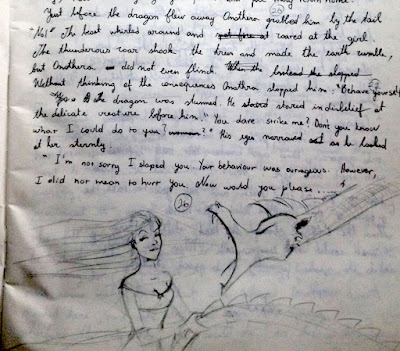 home.
Just before the dragon flew away Anathera grabbed him by the tail
The beast whirled around and roared at the girl.
The thunderous roar shook the trees and made the earth rumble,
but Anathera did not even flinch. she slapped
Without thinking of the consequences Anathera slapped him. "Behave yourself
The dragon was stunned. He stared in disbelief at
the delicate creature before him. "You dare strike me? Don't you know
what I could do to you? ?" His eyes narrowed as he looked
at her sternly.
"I'm not sorry I slaped you. Your behaviour was outrageous. However,
I did not mean to hurt you. Now would you please.....